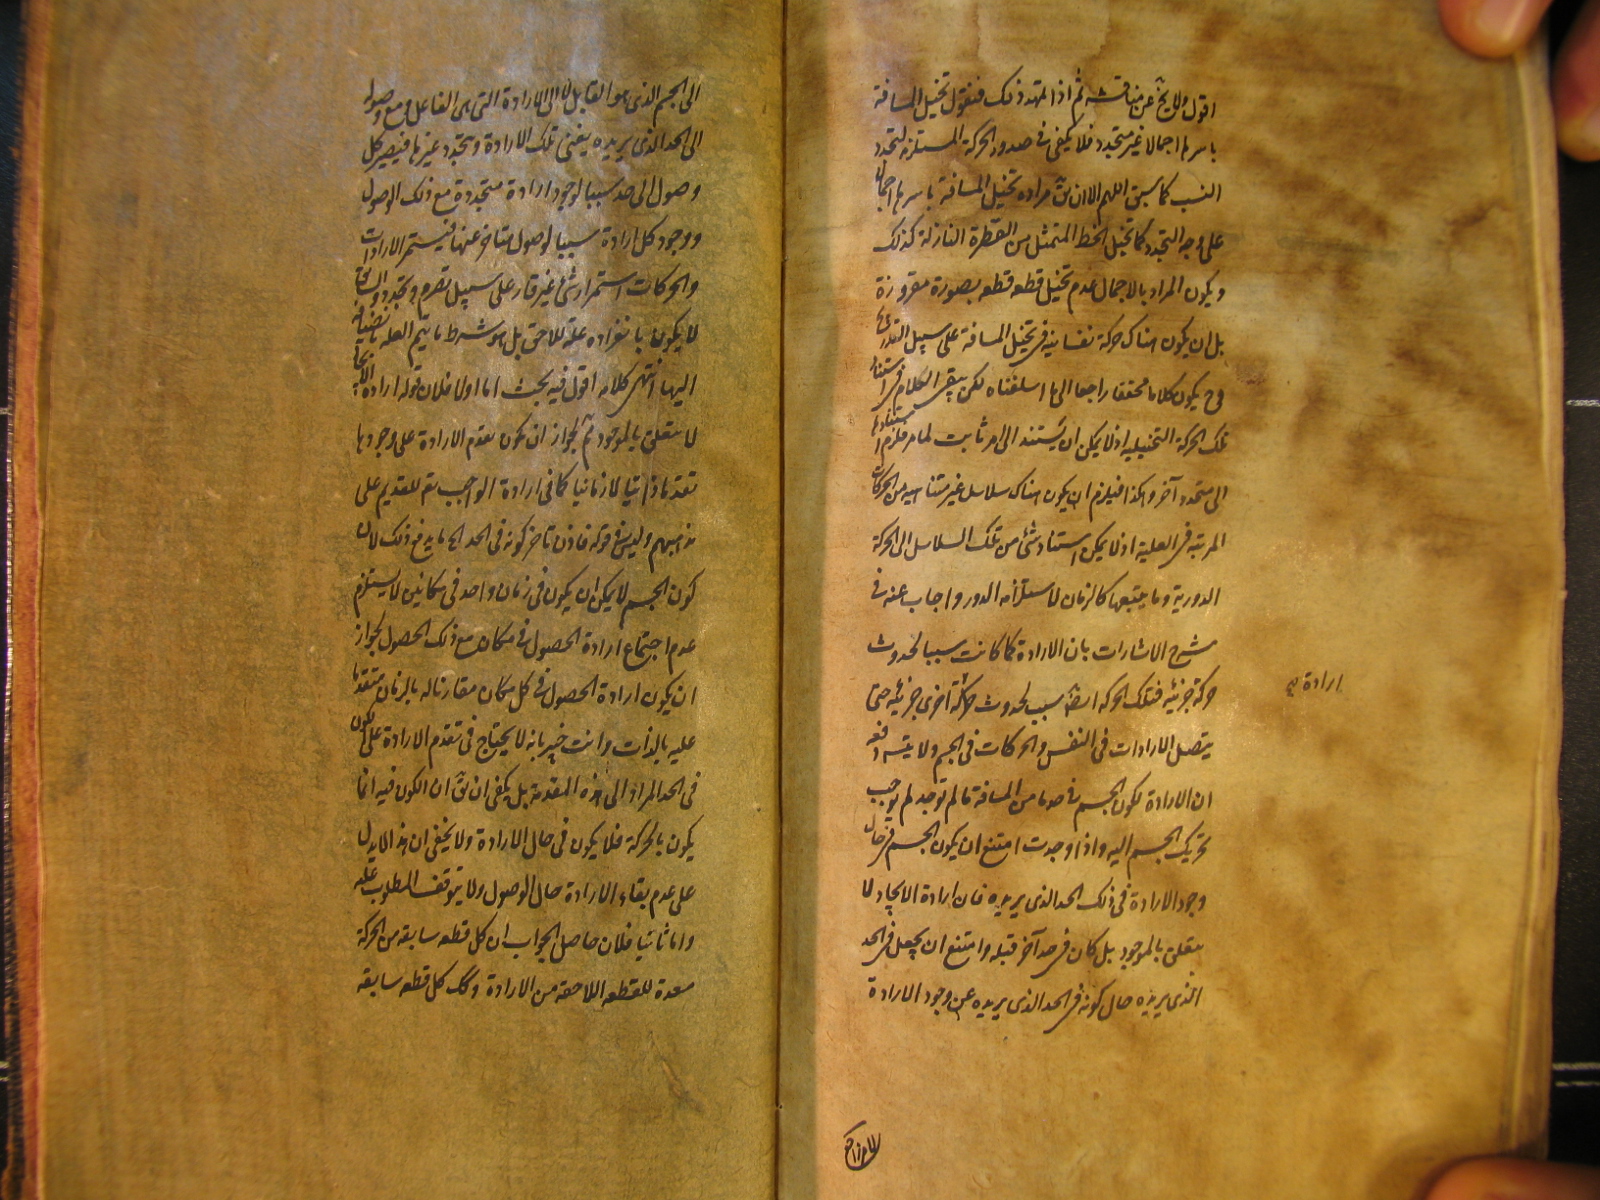 اقول ولا يخ عن مناقشة ثم اذا تمهد ذلك فنقول تخيل المسافة
باسرها اجمالا غير متجدد فلا يكفى فى صدور الحركة المستلزمة لتجدد
النسب كما سبق اللهم الا ان يق مراده تخيل المسافة باسرها اجمالا
على وجه التجدد كما تخيل الخط المتمثل من القطرة النازلة كذلك
ويكون المراد بالاجمال عدم تخيل قطعة قطعة بصورة مفروزة
بل ان يكون هناك حركة نفسانية فى تخيل المسافة على سبيل التدريج
فح يكون كلاما محققا راجعا الى ما اسلفناه لكن يبقى الكلام فى استناد
تلك الحركة التخيلية اذ لا يمكن ان يستند الى امر ثابت لما مر فلزم استنادها
الى متجدد آخر وهكذا فيلزم ان يكون هناك سلاسل غير متناهية من الحركات
المرتبة فى العلية اذ لا يمكن استناد شئ من تلك السلاسل الى الحركة
الدورية وما يتبعها كالزمان لاستلزامه الدور واجاب عنه فى
شرح الاشارات بان الارادة كما كانت سببا لحدوث
حركة جزئية فتلك الحركة ايضا سبب لحدوث حركة اخرى جزئية حتى
ارادة
يتصل الارادات فى النفس والحركات فى الجسم ولا يتسه دفعة
ان الارادة لكون الجسم فى حد ما من المسافة ما لم توجد لم يوجب
تحريك الجسم اليه واذا وجدت امتنع ان يكون الجسم فى حال
وجود الارادة فى ذلك الحد الذى يريده فان ارادة الايجاد لا
يتعلق بالموجود بل كان فى حد آخر قبله وامتنع ان يحصل فى الحد
الذى يريده حال كونه فى الحد الذى يريده عن وجود الارادة
الى الجسم الذى هو القابل لا الى الارادة التى هى الفاعل ومع وصوله
الى الحد الذى يريده يفنى تلك الارادة ويتجدد غيرها فيصير كل
وصول الى حد سببا لوجود ارادة متجددة مع ذلك الوصول
ووجود كل ارادة سببا لوصول متأخر عنها فيستمر الارادات
والحركات استمرار شئ غير قار على سبيل تصرم وتجدد والسابق
لا يكون بانفراده علة للاحق بل هو شرط ما يتم العلة بانضيافه
اليها انتهى كلامه اقول فيه بحث اما اولا فلان قوله ارادة الايجاد
لا يتعلق بالموجود ثم لجواز ان يكون تقدم الارادة على وجودها
تقدما ذاتيا لا زمانيا كما فى ارادة الواجب تع للقديم على
مذهبهم وليس فى قوله فاذن تأخر كونه فى الحد الخ ما يدفع ذلك لان
كون الجسم لا يمكن ان يكون فى زمان واحد فى مكانين لا يستلزم
عدم اجتماع ارادة الحصول فى مكان مع ذلك الحصول لجواز
ان يكون ارادة الحصول فى كل مكان مقارنا له بالزمان متقدما
عليه بالذات وانت خبير بانه لا يحتاج فى تقدم الارادة على الكون
فى الحد المراد الى هذه المقدمة بل يكفى ان يق ان الكون فيه انما
يكون بالحركة فلا يكون فى حال الارادة ولا يخفى ان هذا لا يدل
على عدم بقاء الارادة حال الوصول ولا يتوقف المطلوب عليه
واما ثانيا فلان حاصل الجواب ان كل قطعة سابقة من الحركة
معدة للقطعة اللاحقة من الارادة وكك كل قطعة سابقة